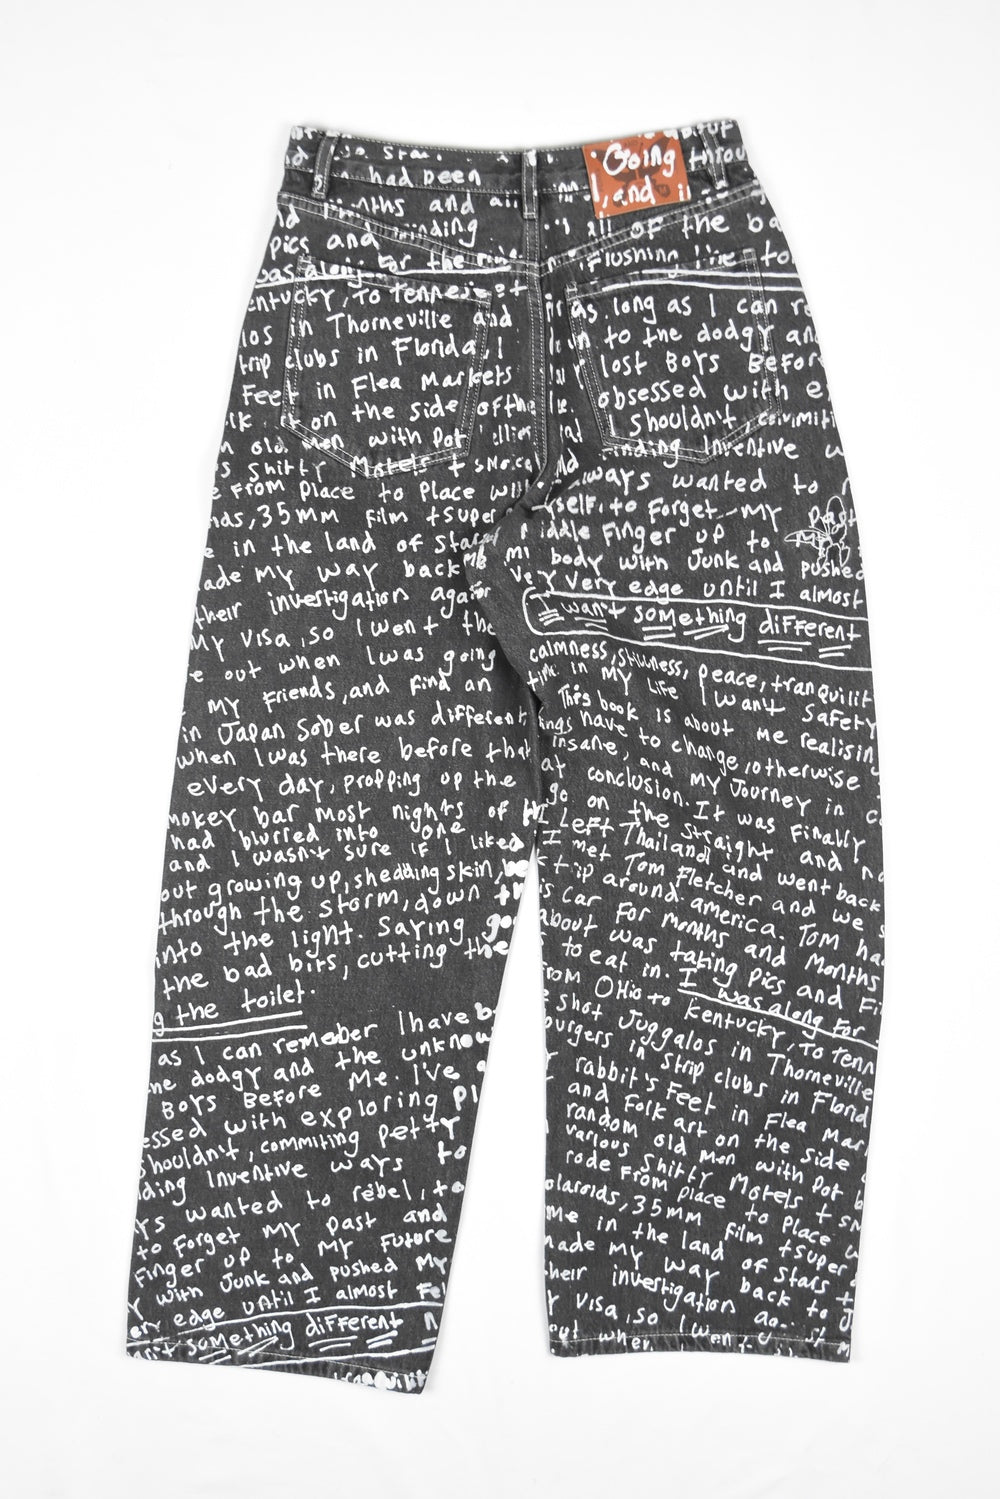 Going
had been
and
pics and
was along for the
Flushing
Kentucky, To Tennessee
in Thorneville and
clubs in Florida, I
Feet in Flea Markets
on the side of the
old men with Pot
Shitty Motels +
From Place to Place
35mm Film + super
in the land of Stars
made My way back
their investigation again
My visa, so I went the
out when I was going
My Friends, and Find an
in Japan Sober was different,
when I was there before that
every day, propping up the
smokey bar Most nights of
had blurred into one
and I wasn't sure if I liked
out growing up, shedding skin,
through the storm, down
into the light. Saying
the bad bits, cutting the
the toilet.
as I can remember I have
the dodgy and the unknow
Boys Before Me. I've
essed with exploring
shouldn't, commiting petty
ding Inventive ways to
wanted to rebel, to
to Forget My past and
Finger up to My Future
with Junk and pushed My
very edge until I almost
something different
all of the
as long as I can
to the dodgy and
lost Boys Before
obsessed with
I shouldn't, commiti
Inventive
always wanted to
to Forget My Past
middle Finger up to
My body with Junk and pushed
very very edge until I almost
I want something different
calmness, stillness, peace, tranquilit
time in My Life I want Safety
This book is about Me realising
things have to change, otherwise
insane, and My Journey in
at conclusion. It was Finally
go on the straight and
I Left Thailand and went back
I met Tom Fletcher and we
trip around america. Tom had
his car For Months and Months
about was taking pics and
to eat in. I was along For
From Ohio to Kentucky, To Tenn
shot Juggalos in Thorneville
burgers in Strip clubs in Florid
rabbit's Feet in Flea Mar
and Folk art on the side
random old Men with Pot
various Shitty Motels +
rode From Place to Place
olaroids, 35mm Film + super
me in the land of Stars +
made My way back to
their investigation
visa, so I went
out when